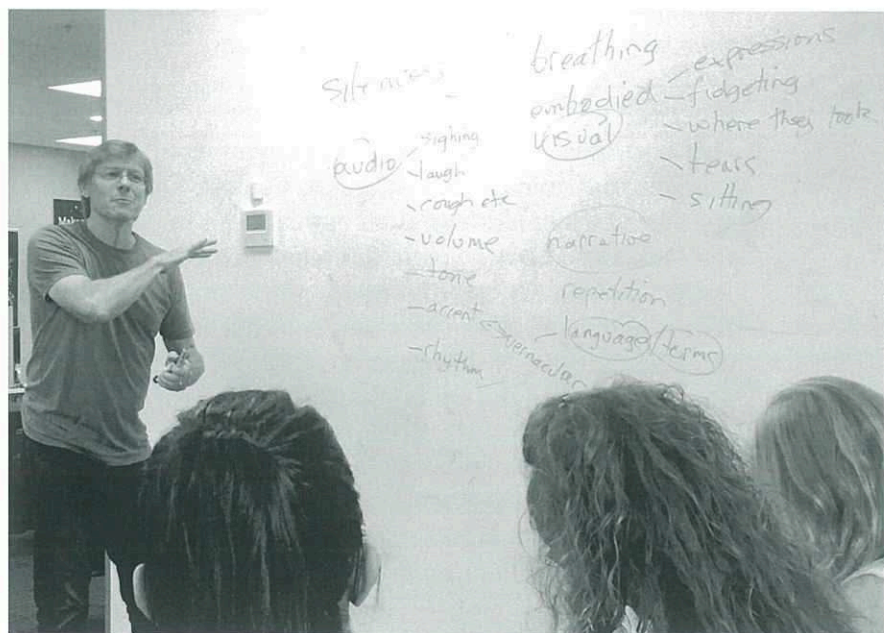 silences
audio
sighing
laugh
cough etc
volume
tone
accent
rhythm
vernacular
breathing
embodied
visual
expressions
fidgeting
where they look
tears
sitting
narrative
repetition
language/terms